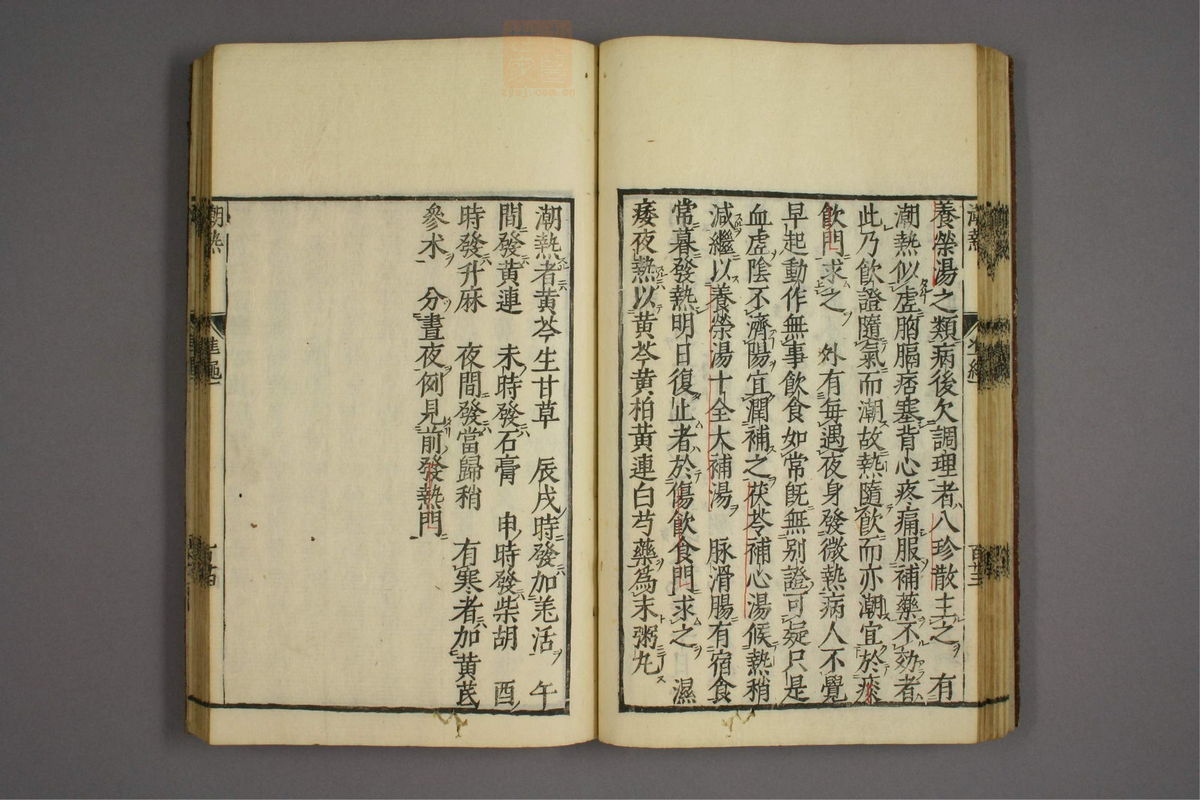 養榮湯之類病後欠調理者八珍散主之 有
潮熱似虚胸膈痞塞背心疼痛服補藥不効者
此乃飲證隨氣而潮故熱隨飲而亦潮宜於痰
飲門求之 外有毎遇夜身發微熱病人不覺
早起動作無事飲食如常既無别證可疑只是
血虚陰不濟陽宜潤補之茯苓補心湯候熱稍
減繼以養榮湯十全大補湯 脉滑腸有宿食
常暮發熱明日復止者於傷飲食門求之 濕
痿夜熱以黄芩黄柏黄連白芍藥為末粥丸
潮熱者黄芩生甘草 辰戌時發加羌活 午
間發黄連 未時發石膏 申時發柴胡 酉
時發升麻 夜間發當歸稍 有寒者加黄芪
參朮 分晝夜例見前發熱門
潮熱
準繩
百十三
潮熱
準繩
百十四